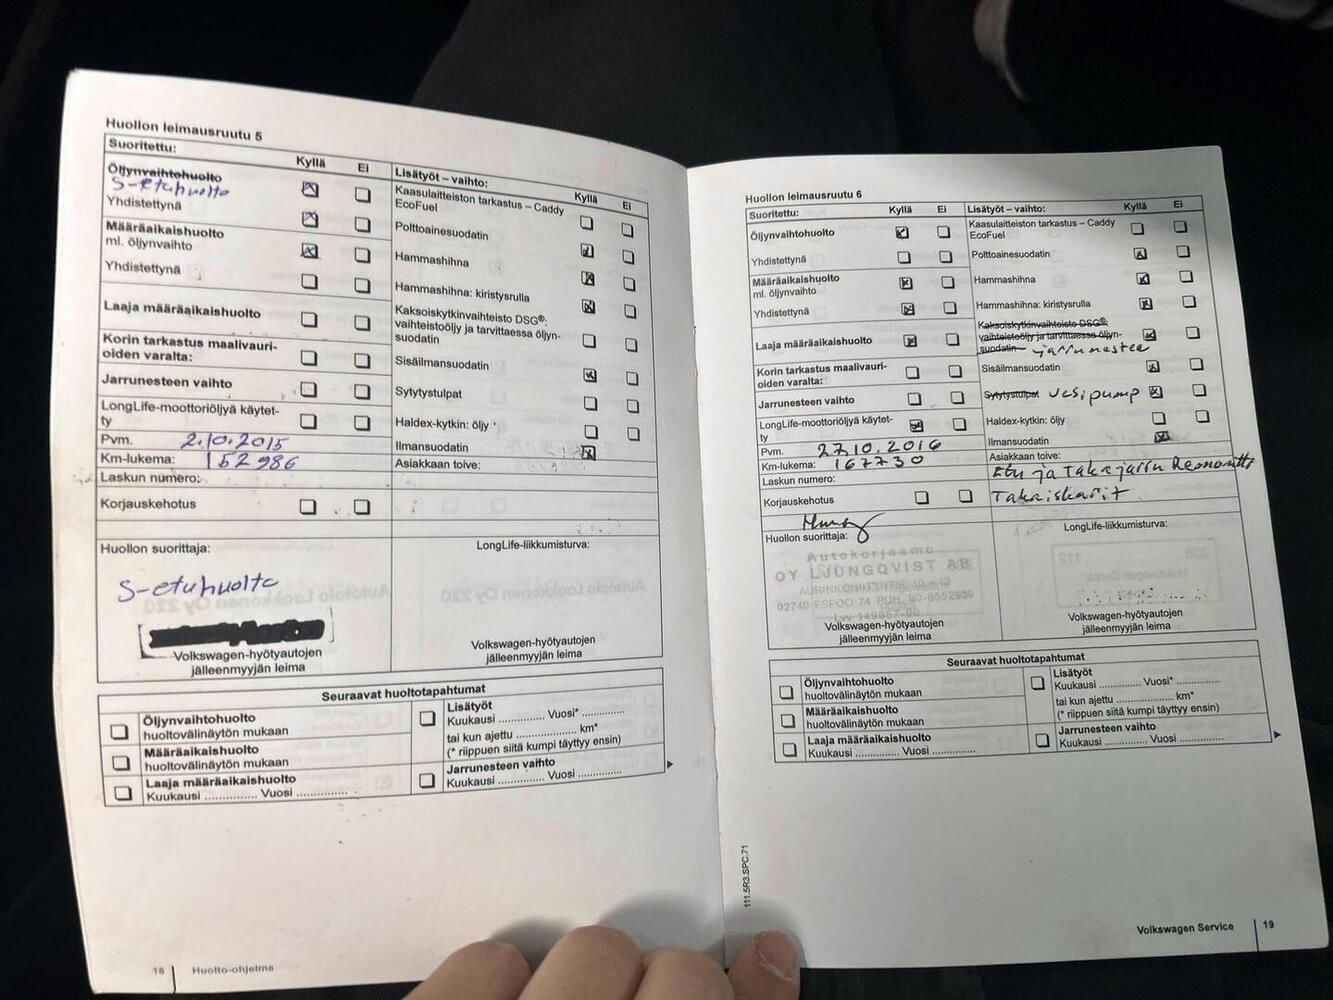 Huollon leimausruutu 5
Suoritettu:
Kyllä
Ei
Öljynvaihtohuolto
S-etuhuolto
Yhdistettynä
Määräaikaishuolto
ml. öljynvaihto
Yhdistettynä
Laaja määräaikaishuolto
Korin tarkastus maalivauri-
oiden varalta:
Jarrunesteen vaihto
LongLife-moottoriöljyä käytet-
ty
Pvm. 2.10.2015
Km-lukema: 152986
Laskun numero:
Korjauskehotus
Lisätyöt – vaihto:
Kyllä
Ei
Kaasulaitteiston tarkastus – Caddy
EcoFuel
Polttoainesuodatin
Hammashihna
Hammashihna: kiristysrulla
Kaksoiskytkinvaihteisto DSG®:
vaihteistoöljy ja tarvittaessa öljyn-
suodatin
Sisäilmansuodatin
Sytytystulpat
Haldex-kytkin: öljy
Ilmansuodatin
Asiakkaan toive:
Huollon suorittaja:
S-etuhuolto
Volkswagen-hyötyautojen
jälleenmyyjän leima
LongLife-liikkumisturva:
Volkswagen-hyötyautojen
jälleenmyyjän leima
Seuraavat huoltotapahtumat
Öljynvaihtohuolto
huoltovälinäytön mukaan
Määräaikaishuolto
huoltovälinäytön mukaan
Laaja määräaikaishuolto
Kuukausi .............. Vuosi ..............
Lisätyöt
Kuukausi .............. Vuosi* ..............
tai kun ajettu ..................... km*
(* riippuen siitä kumpi täyttyy ensin)
Jarrunesteen vaihto
Kuukausi .............. Vuosi ..............
18
Huolto-ohjelma
Huollon leimausruutu 6
Suoritettu:
Kyllä
Ei
Öljynvaihtohuolto
Yhdistettynä
Määräaikaishuolto
ml. öljynvaihto
Yhdistettynä
Laaja määräaikaishuolto
Korin tarkastus maalivauri-
oiden varalta:
Jarrunesteen vaihto
LongLife-moottoriöljyä käytet-
ty
Pvm. 27.10.2016
Km-lukema: 167730
Laskun numero:
Korjauskehotus
Lisätyöt – vaihto:
Kyllä
Ei
Kaasulaitteiston tarkastus – Caddy
EcoFuel
Polttoainesuodatin
Hammashihna
Hammashihna: kiristysrulla
Kaksoiskytkinvaihteisto DSG®:
vaihteistoöljy ja tarvittaessa öljyn-
suodatin jarruneste
Sisäilmansuodatin
Sytytystulpat Vesipump
Haldex-kytkin: öljy
Ilmansuodatin
Asiakkaan toive:
Etu ja Takajarru Remontti
Takaiskarit
Huollon suorittaja:
Autokorjaamo
OY LJUNGQVIST AB
AURINKONTYNTIE 10-12
02740 ESPOO 74 PUH. 90-8552930
Volkswagen-hyötyautojen
jälleenmyyjän leima
LongLife-liikkumisturva:
Volkswagen-hyötyautojen
jälleenmyyjän leima
Seuraavat huoltotapahtumat
Öljynvaihtohuolto
huoltovälinäytön mukaan
Määräaikaishuolto
huoltovälinäytön mukaan
Laaja määräaikaishuolto
Kuukausi .............. Vuosi ..............
Lisätyöt
Kuukausi .............. Vuosi* ..............
tai kun ajettu ..................... km*
(* riippuen siitä kumpi täyttyy ensin)
Jarrunesteen vaihto
Kuukausi .............. Vuosi ..............
111.5R3.SPC.71
Volkswagen Service
19